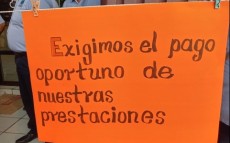 Exigimos el pago
oportuno de
nuestras
prestaciones